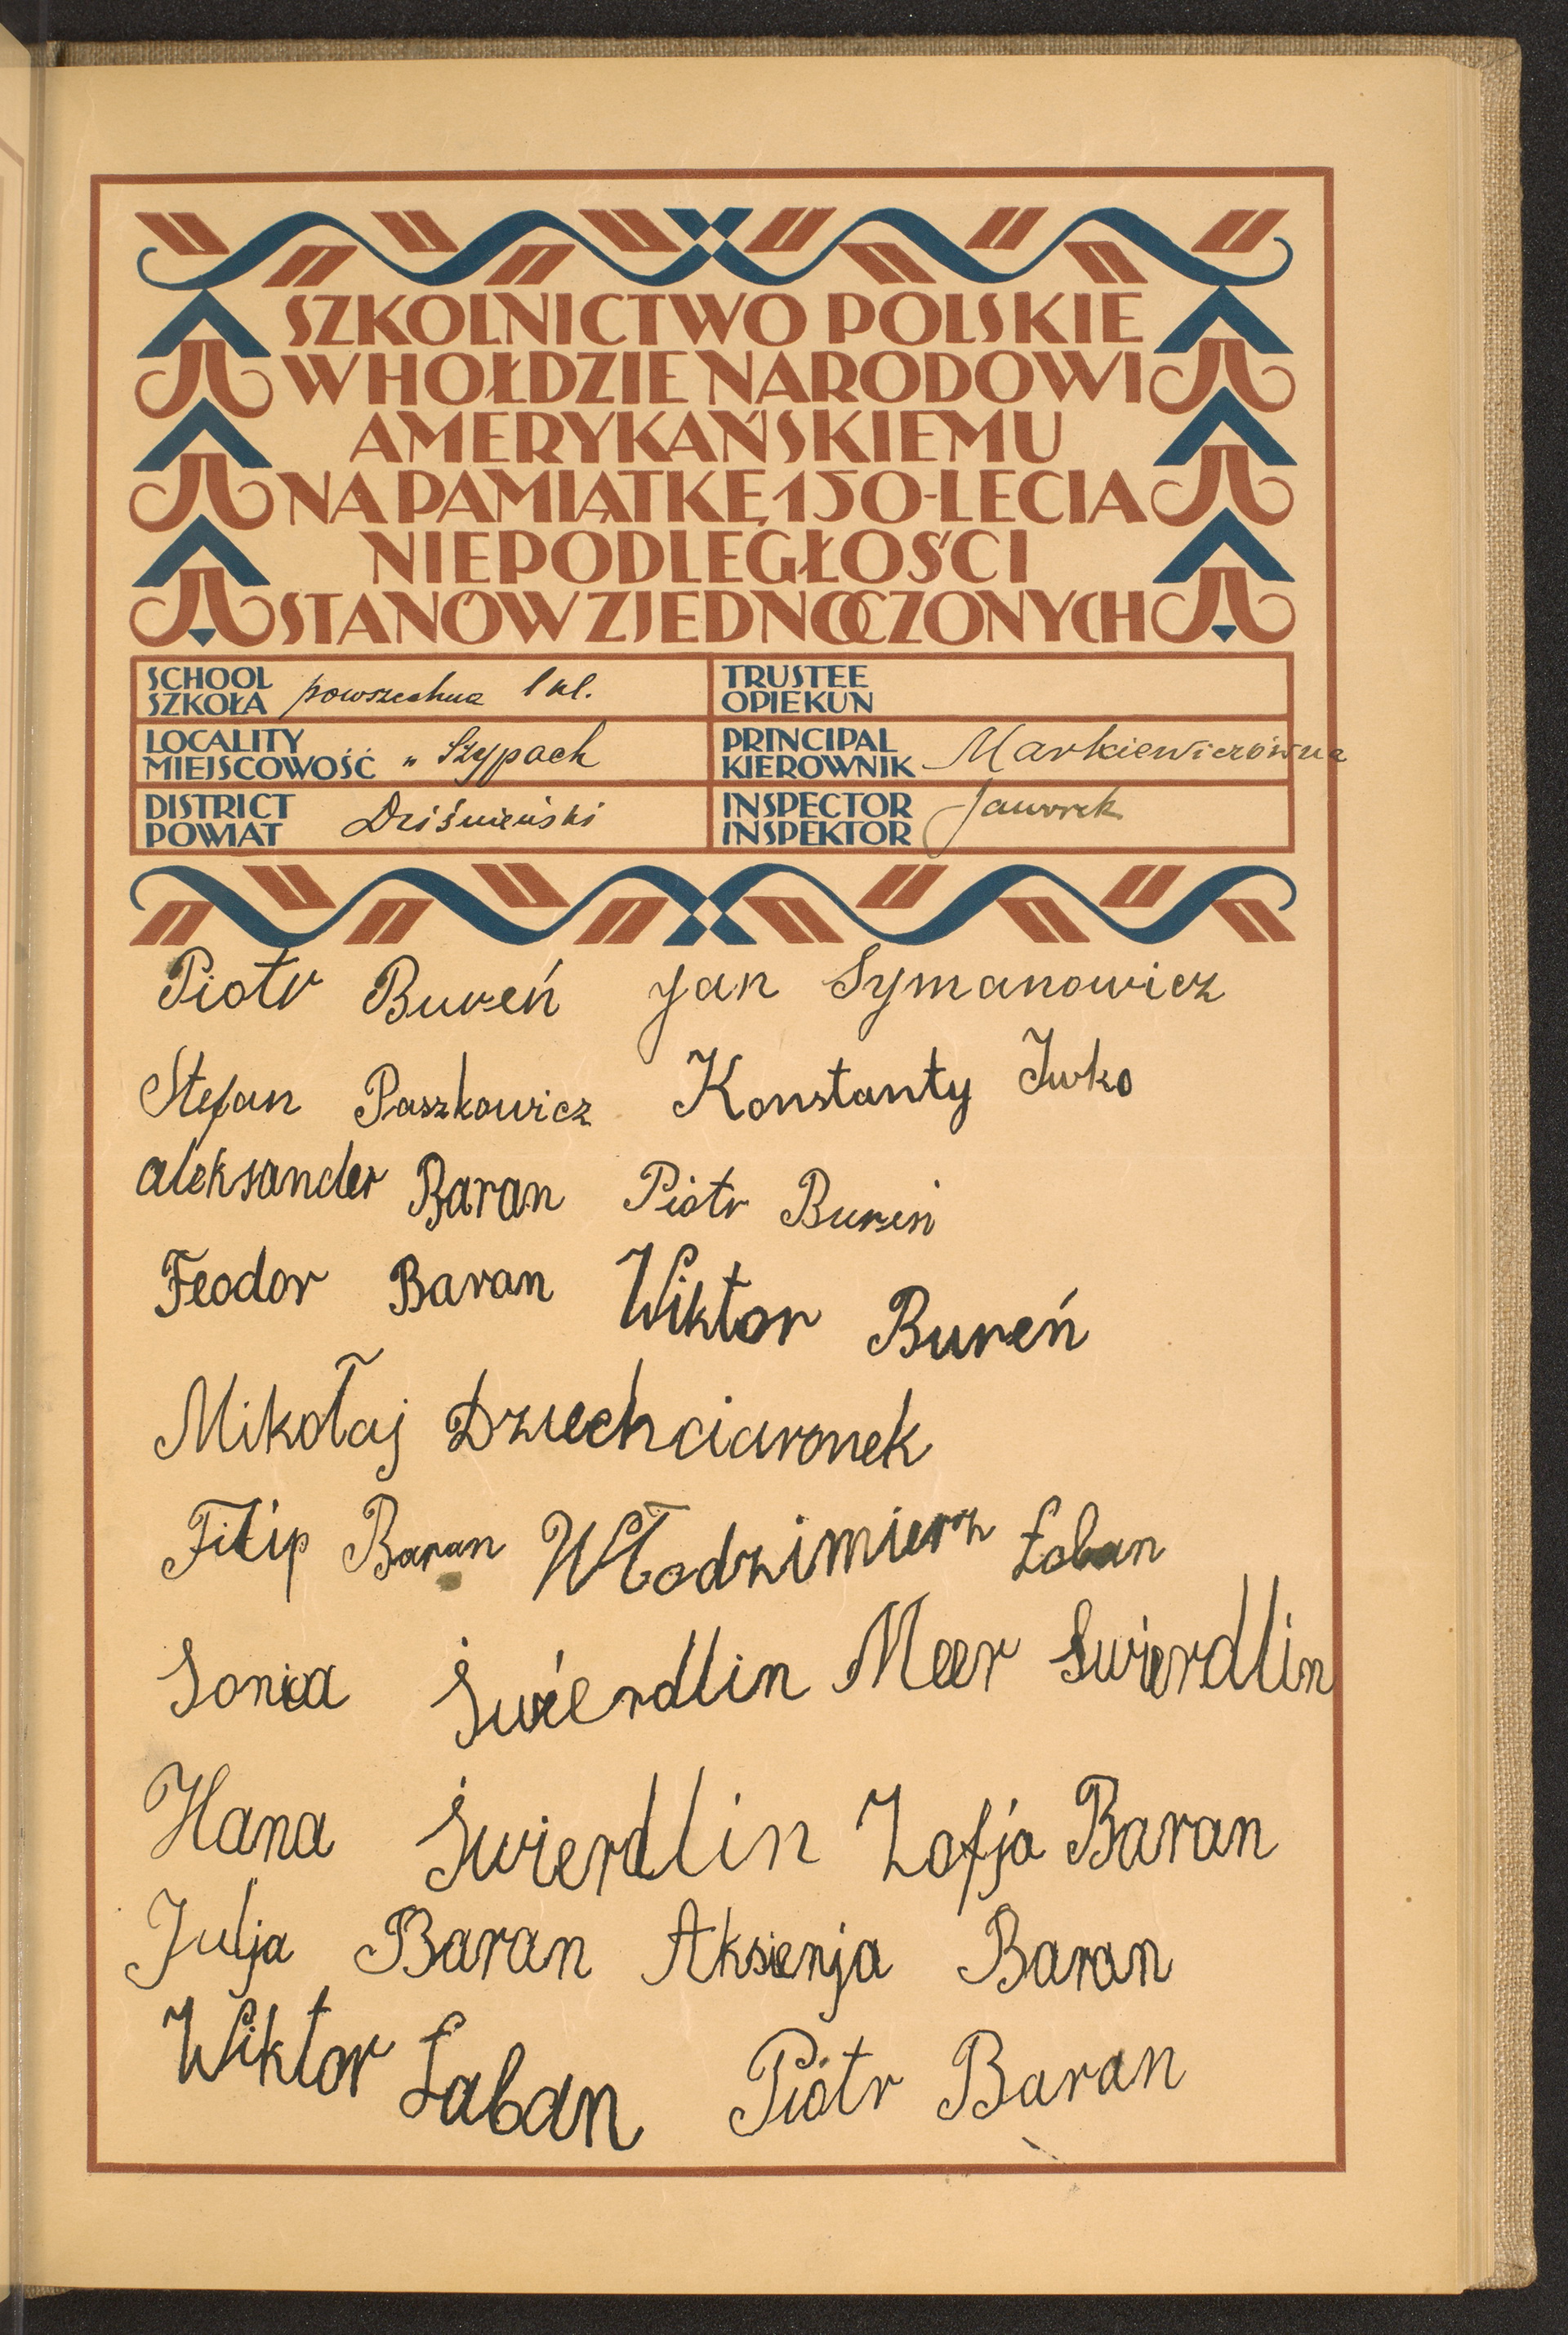 SZKOLNICTWO POLSKIE
W HOŁDZIE NARODOWI
AMERYKAŃSKIEMU
NA PAMIĄTKĘ 150-LECIA
NIEPODLEGŁOŚCI
STANÓW ZJEDNOCZONYCH
SCHOOL
SZKOŁA powszechna 1 kl.
TRUSTEE
OPIEKUN
LOCALITY
MIEJSCOWOŚĆ w Szypach
PRINCIPAL
KIEROWNIK Markiewiczówna
DISTRICT
POWIAT Dziśnieński
INSPECTOR
INSPEKTOR Jaworek
Piotr Bureń Jan Symanowicz
Stefan Paszkowicz Konstanty Iwko
Aleksander Baran Piotr Bureń
Feodor Baran Wiktor Bureń
Mikołaj Dziechciaronek
Filip Baran Włodzimierz Łaban
Sonia Świerdlin Meer Swierdlin
Hana Świerdlin Zofja Baran
Julja Baran Aksienja Baran
Wiktor Łaban Piotr Baran